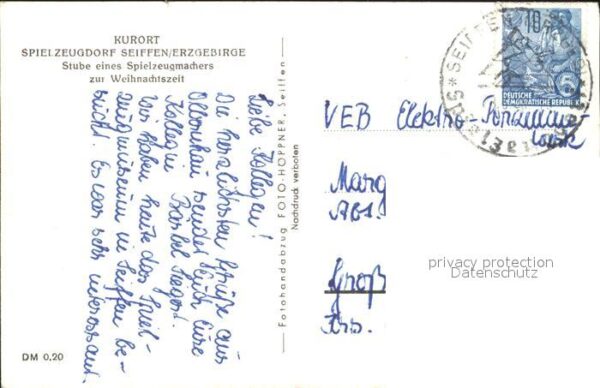 KURORT
SPIELZEUGDORF SEIFFEN/ERZGEBIRGE
Stube eines Spielzeugmachers
zur Weihnachtszeit
Liebe Kollegen!
Die herzlichsten Grüße aus
Olbernhau sendet Euch Eure
Kollegin Bärbel
Wir haben heute das Spiel-
zeugmuseum in Seiffen be-
sucht. Es war sehr interessant.
DM 0,20
Fotohandabzug FOTO-HÖPPNER, Seiffen
Nachdruck verboten
10
5
DEUTSCHE
DEMOKRATISCHE REPUBLIK
SEIFFEN
VEB Elektro-
werk
Marg
Abt.
Groß
privacy protection
Datenschutz